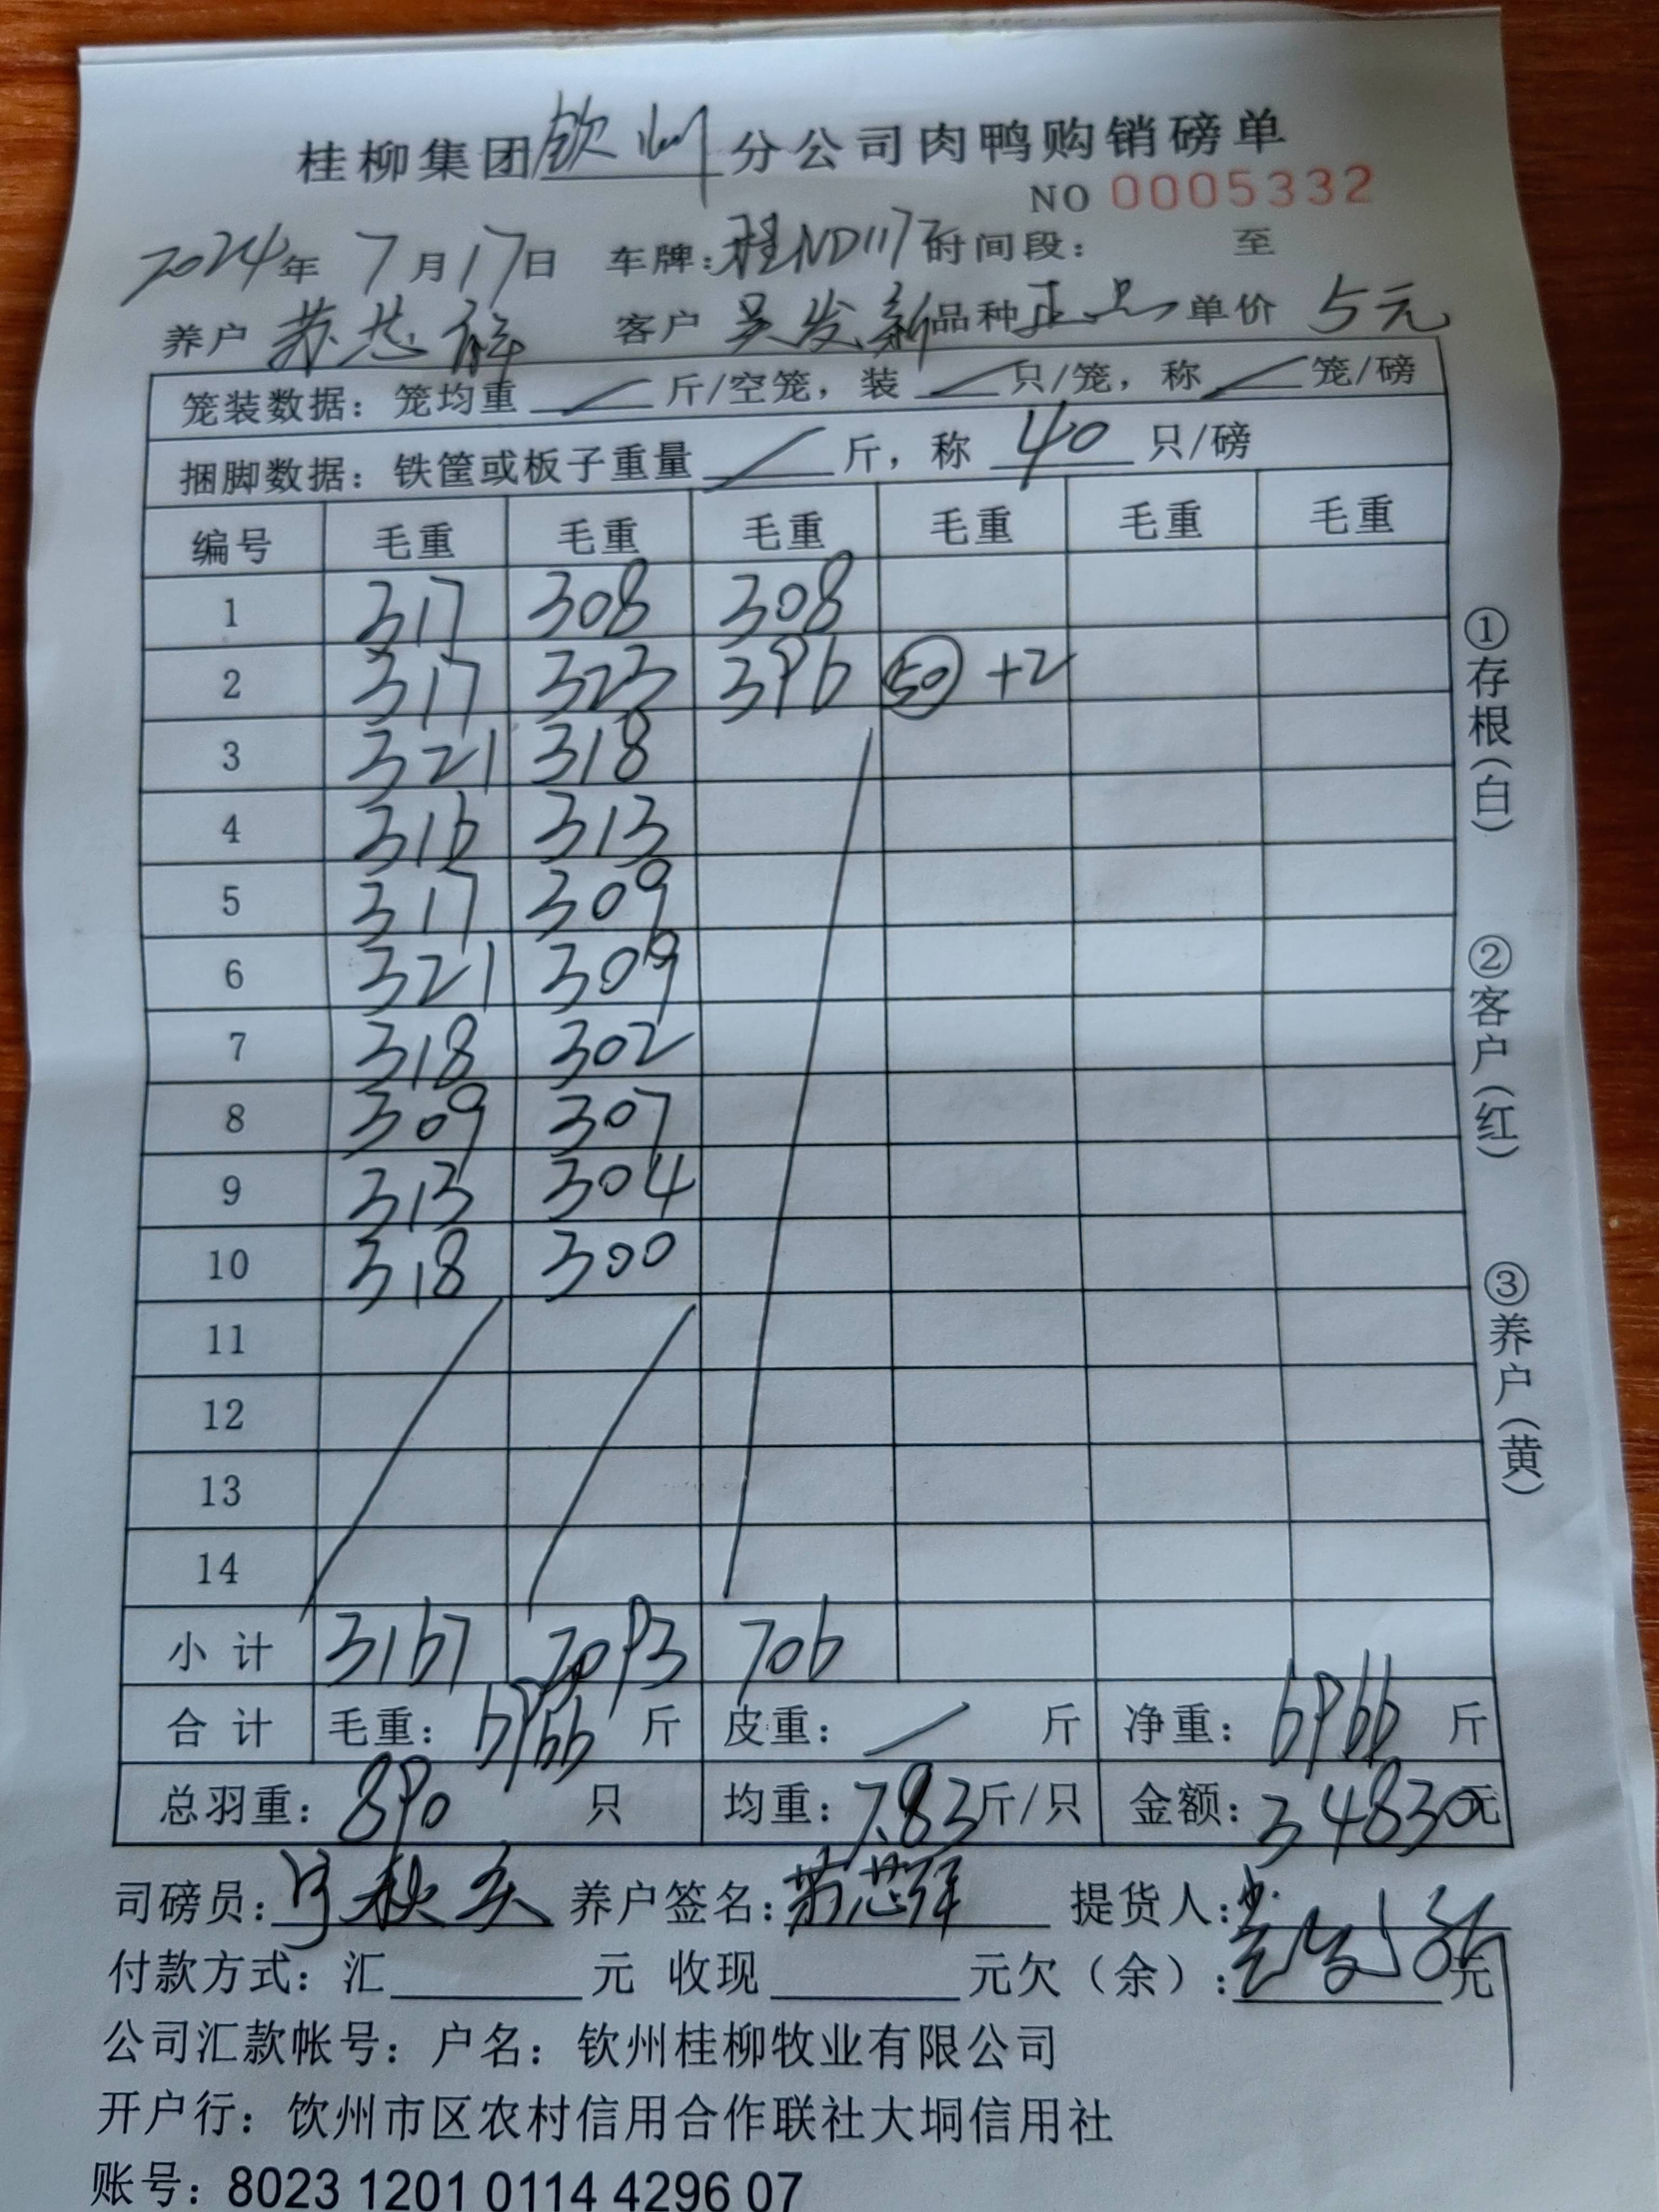 桂柳集团钦州分公司肉鸭购销磅单
NO 0005332
2024年 7月17日 车牌:桂ND117 时间段: 至
养户 苏芯 客户 吴发新 品种 正品 单价 5元
笼装数据: 笼均重 / 斤/空笼, 装 / 只/笼, 称 / 笼/磅
捆脚数据: 铁筐或板子重量 / 斤, 称 40 只/磅
编号 毛重 毛重 毛重 毛重 毛重 毛重
1 317 308 308
2 317 323 396 50 +2
3 321 318
4 316 313
5 317 309
6 321 309
7 318 302
8 309 307
9 313 304
10 318 300
11
12
13
14
小计 3167 3093 706
合计 毛重: 6966 斤 皮重: / 斤 净重: 6966 斤
总羽重: 890 只 均重: 7.83斤/只 金额: 34830元
司磅员: 养户签名: 苏芯 提货人: 吴发新
付款方式: 汇 元 收现 元欠(余): 元
公司汇款帐号: 户名: 钦州桂柳牧业有限公司
开户行: 饮州市区农村信用合作联社大垌信用社
账号: 8023 1201 0114 4296 07
①存根(白)
②客户(红)
③养户(黄)